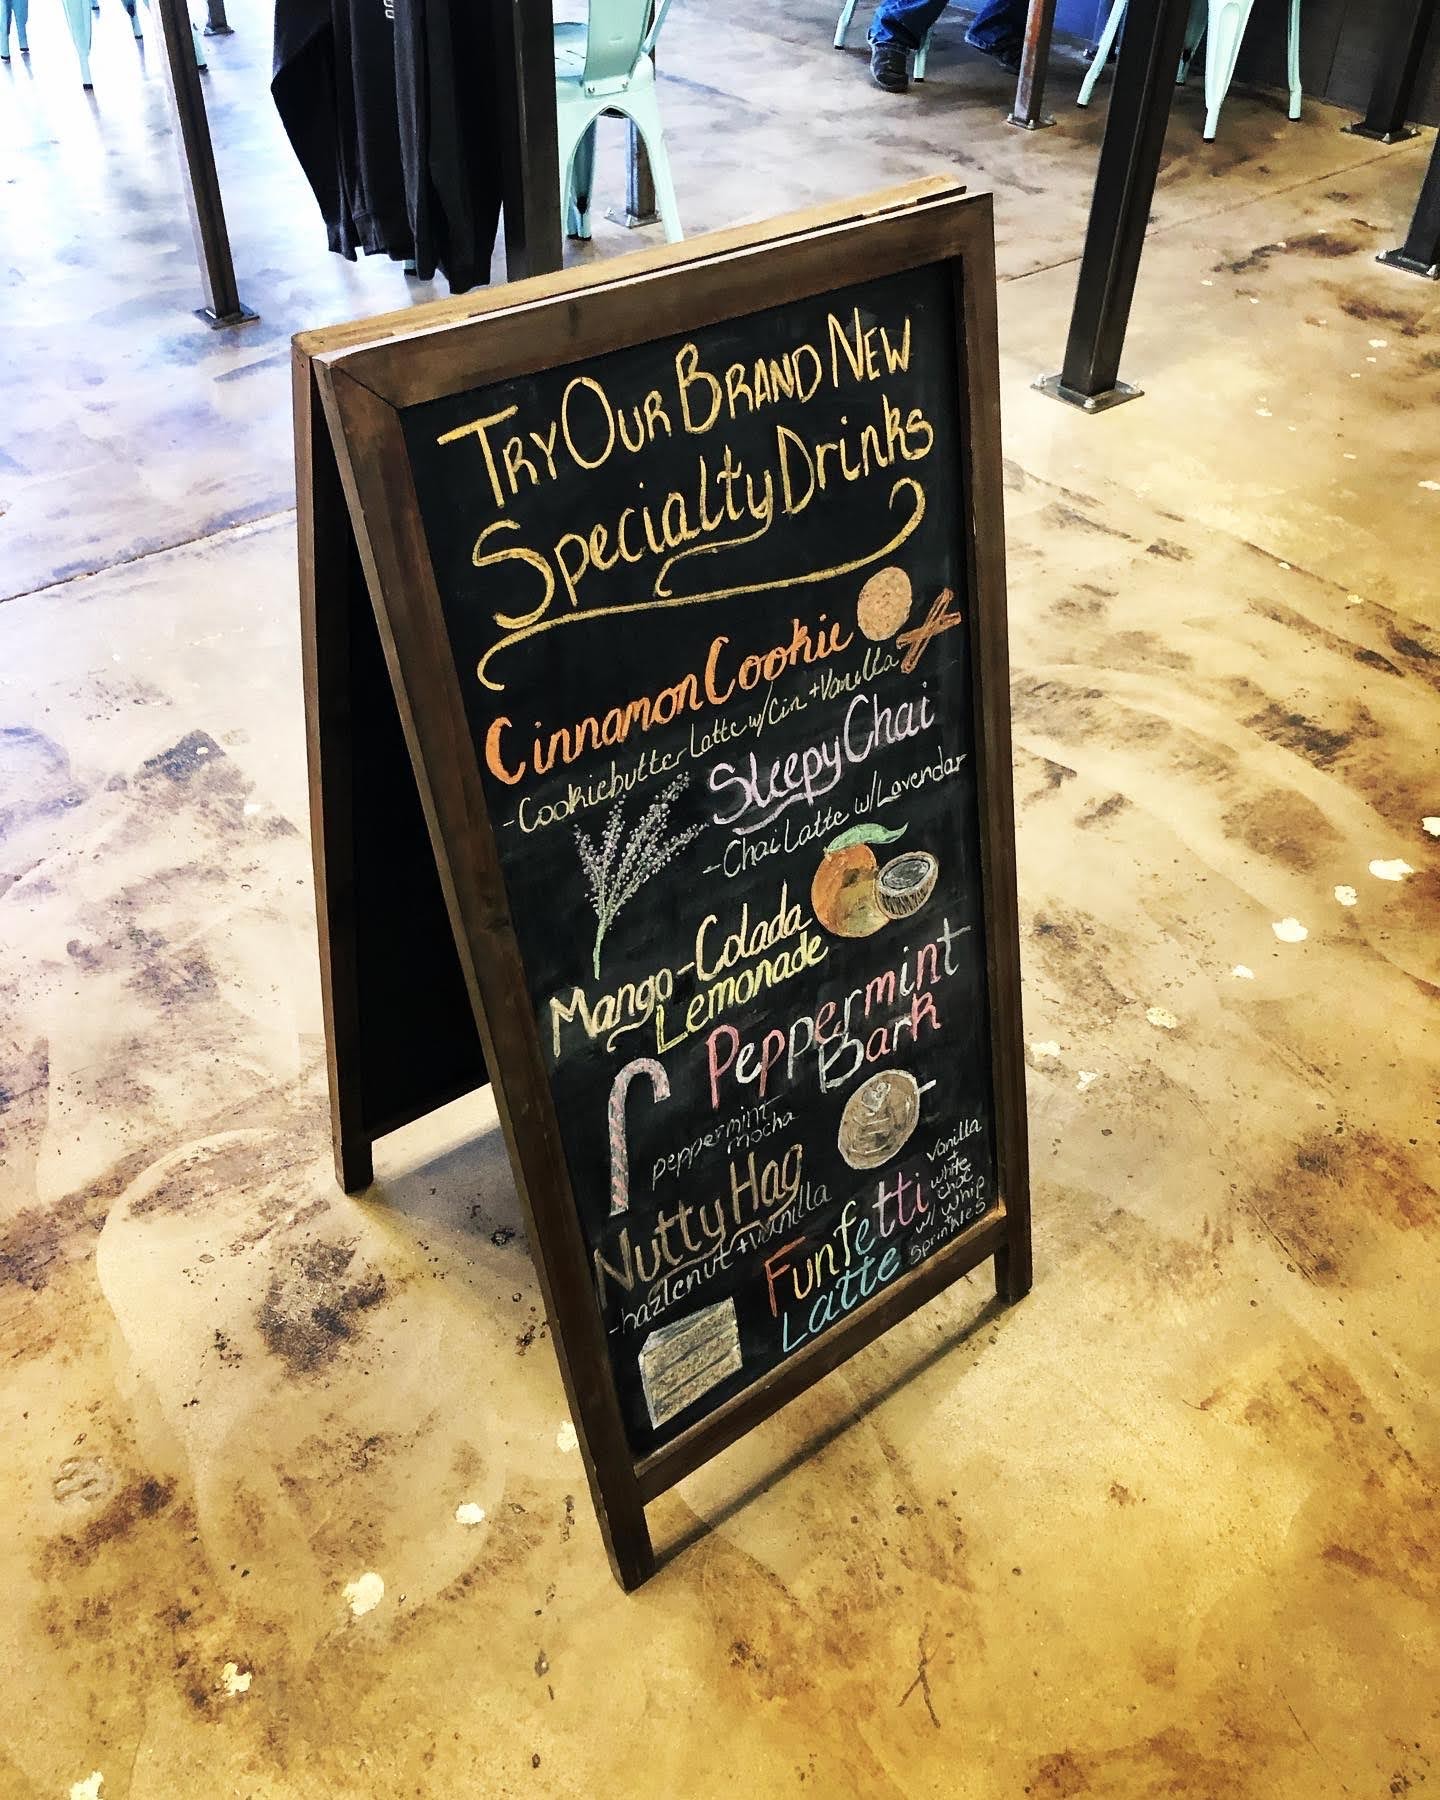 Try Our Brand New
Specialty Drinks
Cinnamon Cookie
-Cookiebutter Latte w/Cin +Vanilla
Sleepy Chai
-Chai Latte w/Lavendar
Mango-Colada
Lemonade
Peppermint
Bark
peppermint
mocha
Nutty Hag
-hazlenut +vanilla
Funfetti
Latte
vanilla
+
white
choc
w/ whip
+
sprinkles